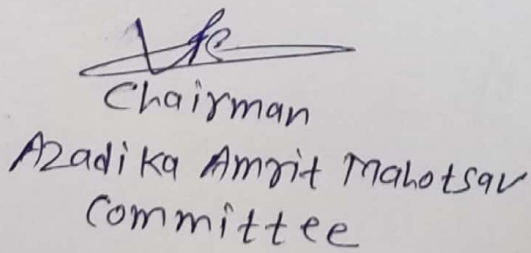 Chairman
Azadi ka Amrit Mahotsav
Committee